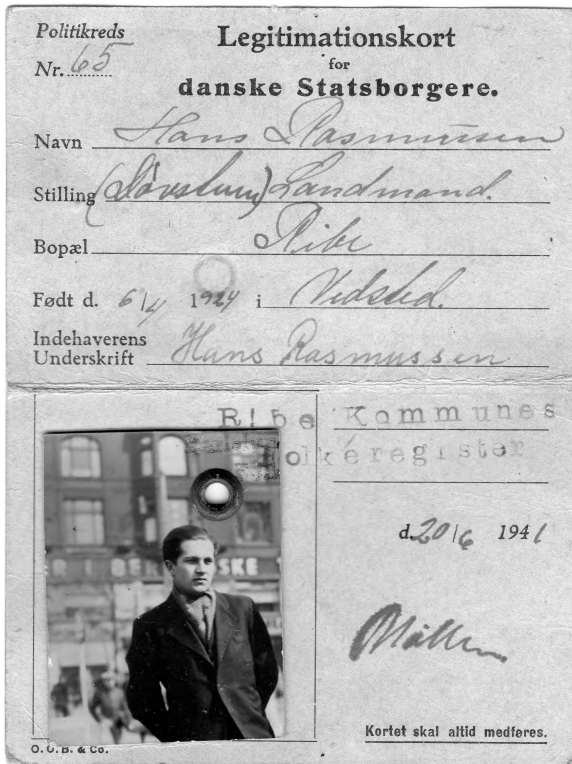 Politikreds
Nr. 65
Legitimationskort
for
danske Statsborgere.
Navn Hans Rasmussen
Stilling (Søvstrup) Landmand.
Bopæl Ribe
Født d. 6/4 1924 i Vedsted.
Indehaverens
Underskrift Hans Rasmussen
Ribe Kommunes
Folkeregister
d. 20/6 1941
Møller
Kortet skal altid medføres.
O. C. B. & Co.